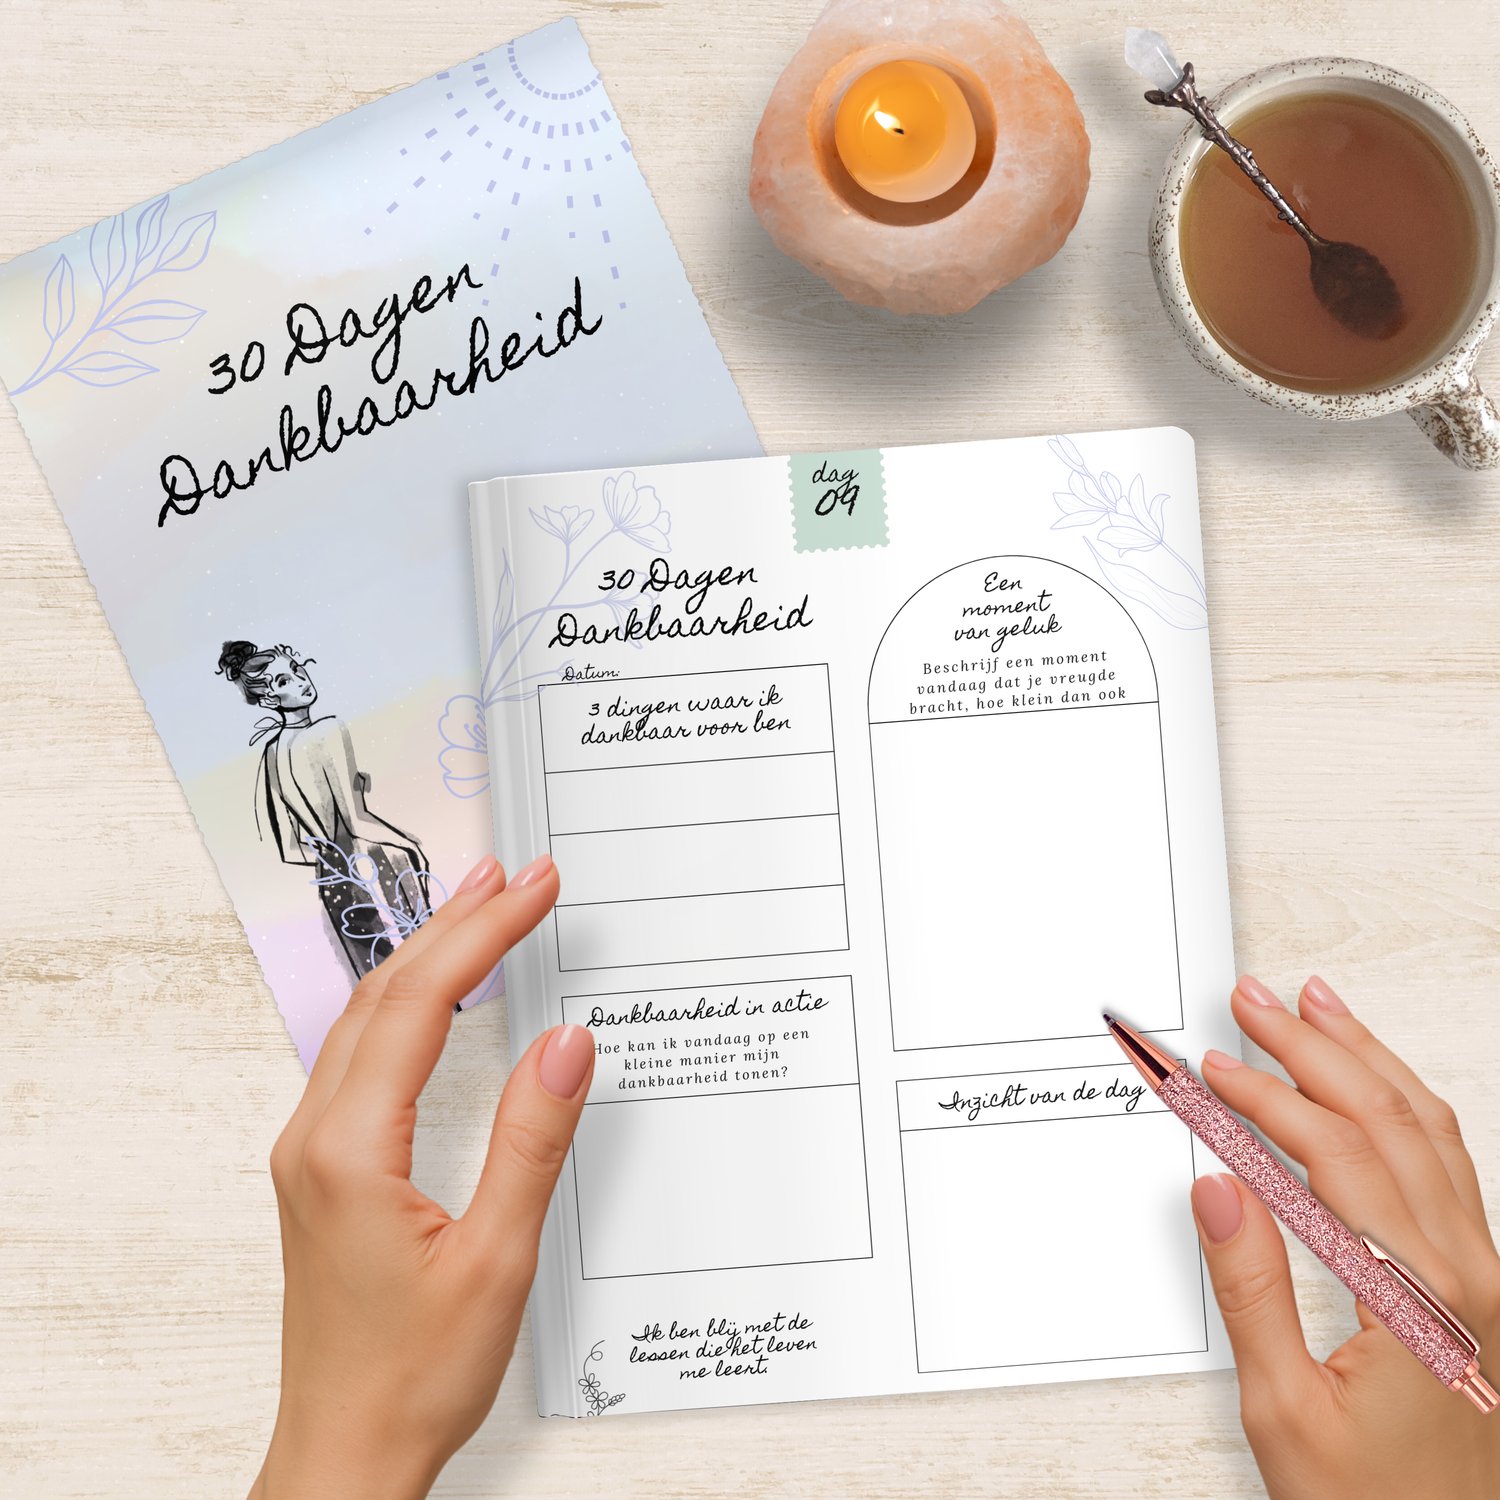 30 Dagen
Dankbaarheid
dag
09
30 Dagen
Dankbaarheid
Datum:
3 dingen waar ik
dankbaar voor ben
Dankbaarheid in actie
Hoe kan ik vandaag op een
kleine manier mijn
dankbaarheid tonen?
Ik ben blij met de
lessen die het leven
me leert.
Een
moment
van geluk
Beschrijf een moment
vandaag dat je vreugde
bracht, hoe klein dan ook
Inzicht van de dag